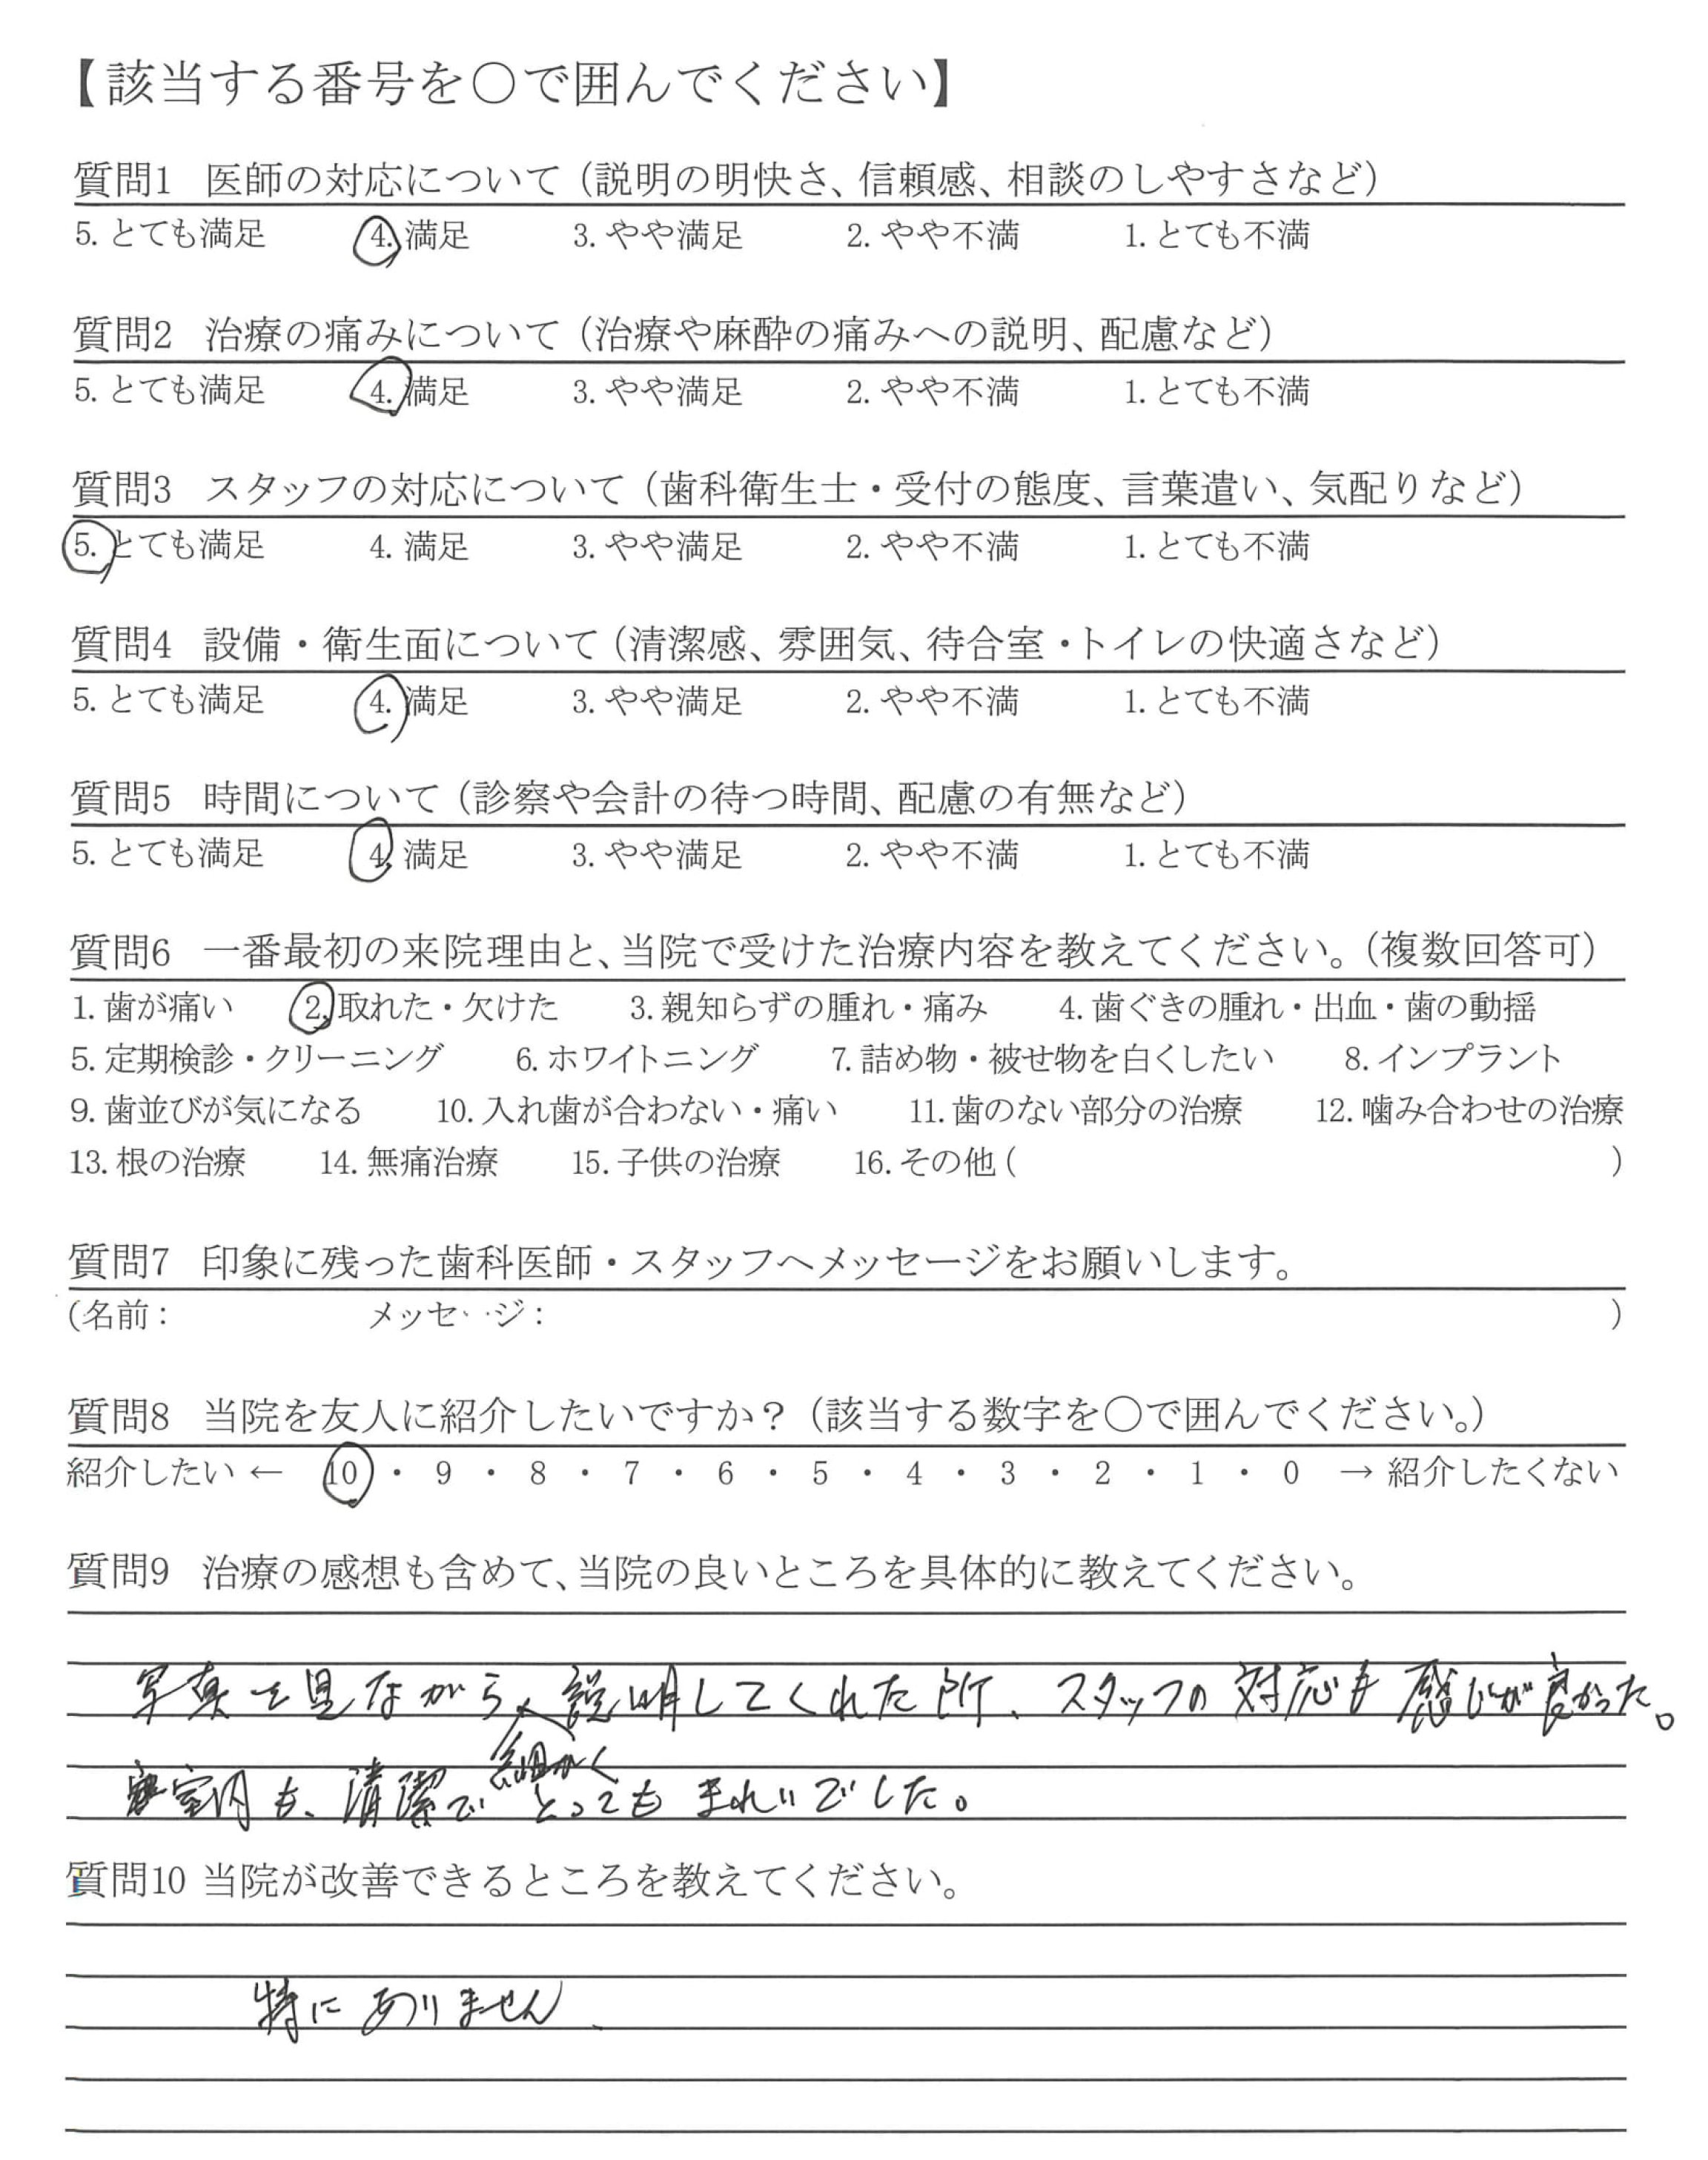 【該当する番号を○で囲んでください】
質問1 医師の対応について（説明の明快さ、信頼感、相談のしやすさなど）
5. とても満足 4. 満足 3. やや満足 2. やや不満 1. とても不満
質問2 治療の痛みについて（治療や麻酔の痛みへの説明、配慮など）
5. とても満足 4. 満足 3. やや満足 2. やや不満 1. とても不満
質問3 スタッフの対応について（歯科衛生士・受付の態度、言葉遣い、気配りなど）
5. とても満足 4. 満足 3. やや満足 2. やや不満 1. とても不満
質問4 設備・衛生面について（清潔感、雰囲気、待合室・トイレの快適さなど）
5. とても満足 4. 満足 3. やや満足 2. やや不満 1. とても不満
質問5 時間について（診察や会計の待つ時間、配慮の有無など）
5. とても満足 4. 満足 3. やや満足 2. やや不満 1. とても不満
質問6 一番最初の来院理由と、当院で受けた治療内容を教えてください。（複数回答可）
1. 歯が痛い 2. 取れた・欠けた 3. 親知らずの腫れ・痛み 4. 歯ぐきの腫れ・出血・歯の動揺
5. 定期検診・クリーニング 6. ホワイトニング 7. 詰め物・被せ物を白くしたい 8. インプラント
9. 歯並びが気になる 10. 入れ歯が合わない・痛い 11. 歯のない部分の治療 12. 噛み合わせの治療
13. 根の治療 14. 無痛治療 15. 子供の治療 16. その他（ ）
質問7 印象に残った歯科医師・スタッフへメッセージをお願いします。
（名前： メッセージ： ）
質問8 当院を友人に紹介したいですか？（該当する数字を○で囲んでください。）
紹介したい ← 10 ・ 9 ・ 8 ・ 7 ・ 6 ・ 5 ・ 4 ・ 3 ・ 2 ・ 1 ・ 0 → 紹介したくない
質問9 治療の感想も含めて、当院の良いところを具体的に教えてください。
写真を見ながら、説明してくれた所、スタッフの対応も感じが良かった。
細かく
室内も、清潔でとってもきれいでした。
質問10 当院が改善できるところを教えてください。
特にありません、